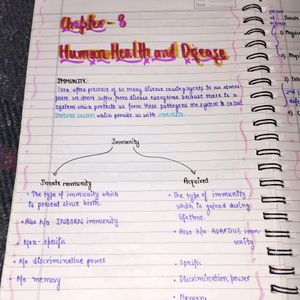 Chapter - 8
Human Health and Disease
IMMUNITY:
Even after presence of so many disease causing agents in our atmos-
phere we don't suffer from disease everytime because there is a
system which protects us from these pathogens. The system is called
IMMUNE SYSTEM which provide us with IMMUNITY.
Immunity
Innate immunity
• The type of immunity which
is present since birth.
• Also k/a INBORN immunity
• Non - specific
• No discriminative power
• No memory
Acquired
• The type of immunity
which is gained during
lifetime.
• Also k/a ADAPTIVE imm-
unity
• Specific
• Discrimination power
• Memory